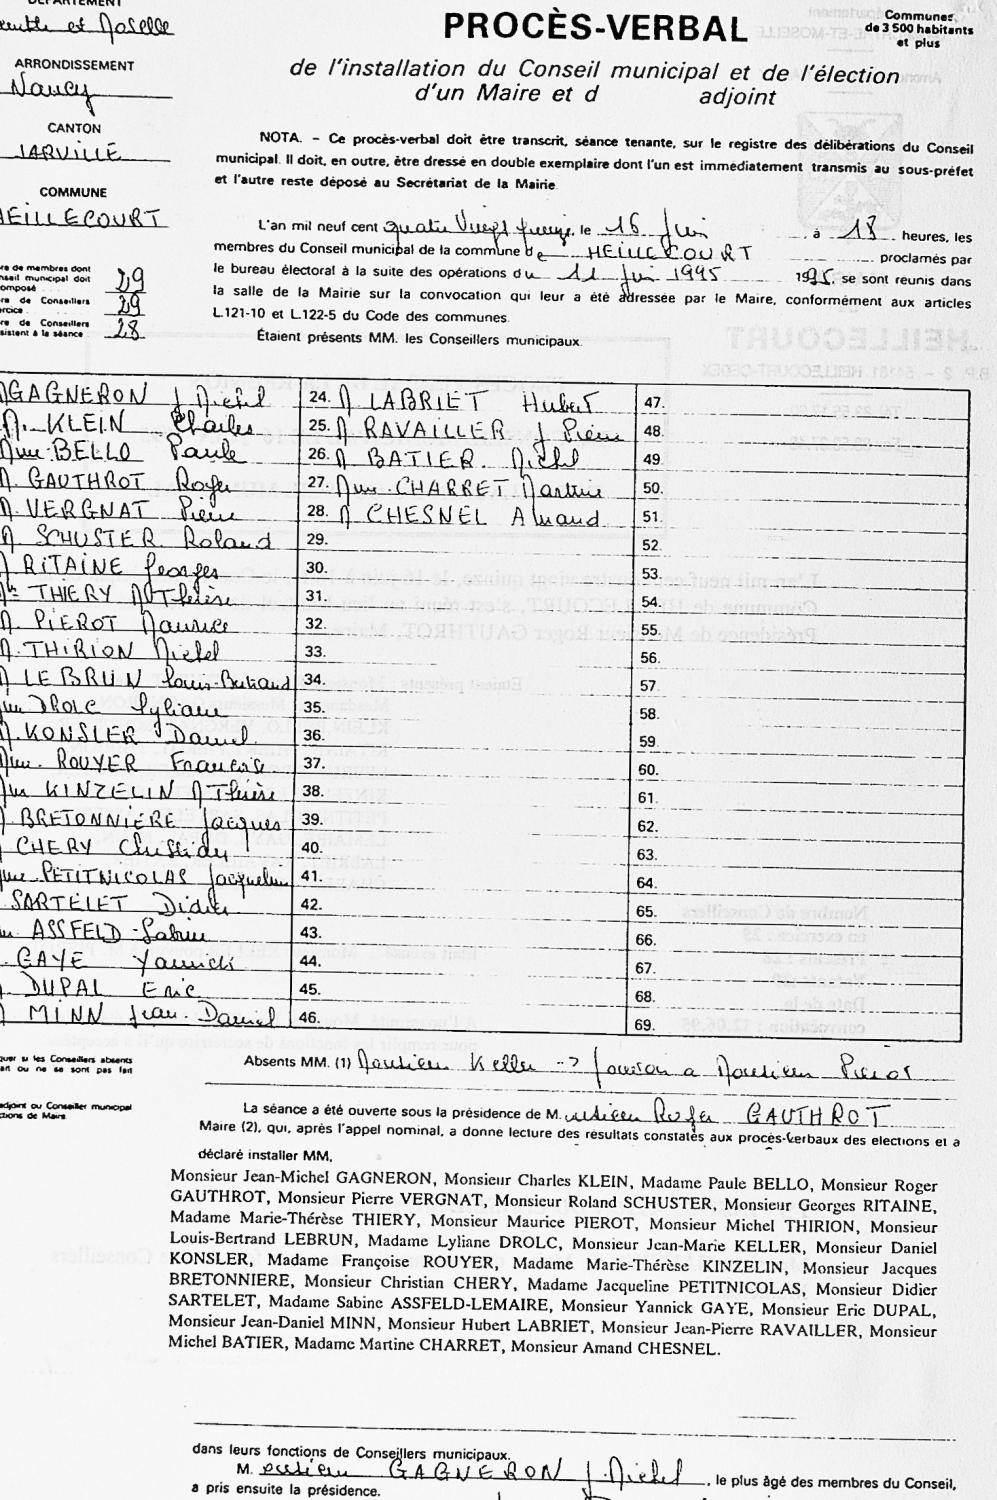 DÉPARTEMENT
et Moselle
ARRONDISSEMENT
Nancy
CANTON
JARVILLE
COMMUNE
HEILLECOURT
re de membres dont
nseil municipal doit
omposé 29
re de Conseillers
ercice 29
re de Conseillers
sistent à la séance 28
PROCÈS-VERBAL
Communes
de 3 500 habitants
et plus
de l'installation du Conseil municipal et de l'élection
d'un Maire et d adjoint
NOTA. – Ce procès-verbal doit être transcrit, séance tenante, sur le registre des délibérations du Conseil
municipal. Il doit, en outre, être dressé en double exemplaire dont l'un est immédiatement transmis au sous-préfet
et l'autre reste déposé au Secrétariat de la Mairie.
L'an mil neuf cent quatre Vingt quinze, le 16 Juin à 18 heures, les
membres du Conseil municipal de la commune de HEILLECOURT proclamés par
le bureau électoral à la suite des opérations du 11 Juin 1995 1995, se sont réunis dans
la salle de la Mairie sur la convocation qui leur a été adressée par le Maire, conformément aux articles
L.121-10 et L.122-5 du Code des communes.
Étaient présents MM. les Conseillers municipaux.
M GAGNERON J Michel 24. M LABRIET Hubert 47.
M. KLEIN Charles 25. M RAVAILLER J Pierre 48.
Mme BELLO Paule 26. M BATIER Michel 49.
M. GAUTHROT Roger 27. Mme CHARRET Martine 50.
M. VERGNAT Pierre 28. M CHESNEL Amand 51.
M SCHUSTER Roland 29. 52.
M RITAINE Georges 30. 53.
THIERY M Thérèse 31. 54.
M. PIEROT Maurice 32. 55.
M. THIRION Michel 33. 56.
M LEBRUN Louis-Bertrand 34. 57.
DROLC Lyliane 35. 58.
M. KONSLER Daniel 36. 59.
Mme. ROUYER Françoise 37. 60.
Mme KINZELIN M Thérèse 38. 61.
M. BRETONNIERE Jacques 39. 62.
CHERY Christian 40. 63.
PETITNICOLAS Jacqueline 41. 64.
SARTELET Didier 42. 65.
ASSFELD-Sabine 43. 66.
GAYE Yannick 44. 67.
M DUPAL Eric 45. 68.
M MINN Jean-Daniel 46. 69.
quer si les Conseillers absents
art ou ne se sont pas fait
Absents MM. (1) Monsieur Keller -> pouvoir à Monsieur Pierot
adjoint ou Conseiller municipal
ctions de Maire.
La séance a été ouverte sous la présidence de M. onsieur Roger GAUTHROT
Maire (2), qui, après l'appel nominal, a donné lecture des résultats constatés aux procès-verbaux des élections et a
déclaré installer MM.
Monsieur Jean-Michel GAGNERON, Monsieur Charles KLEIN, Madame Paule BELLO, Monsieur Roger
GAUTHROT, Monsieur Pierre VERGNAT, Monsieur Roland SCHUSTER, Monsieur Georges RITAINE,
Madame Marie-Thérèse THIERY, Monsieur Maurice PIEROT, Monsieur Michel THIRION, Monsieur
Louis-Bertrand LEBRUN, Madame Lyliane DROLC, Monsieur Jean-Marie KELLER, Monsieur Daniel
KONSLER, Madame Françoise ROUYER, Madame Marie-Thérèse KINZELIN, Monsieur Jacques
BRETONNIERE, Monsieur Christian CHERY, Madame Jacqueline PETITNICOLAS, Monsieur Didier
SARTELET, Madame Sabine ASSFELD-LEMAIRE, Monsieur Yannick GAYE, Monsieur Eric DUPAL,
Monsieur Jean-Daniel MINN, Monsieur Hubert LABRIET, Monsieur Jean-Pierre RAVAILLER, Monsieur
Michel BATIER, Madame Martine CHARRET, Monsieur Amand CHESNEL.
dans leurs fonctions de Conseillers municipaux.
M. onsieur GAGNERON J. Michel, le plus âgé des membres du Conseil,
a pris ensuite la présidence.